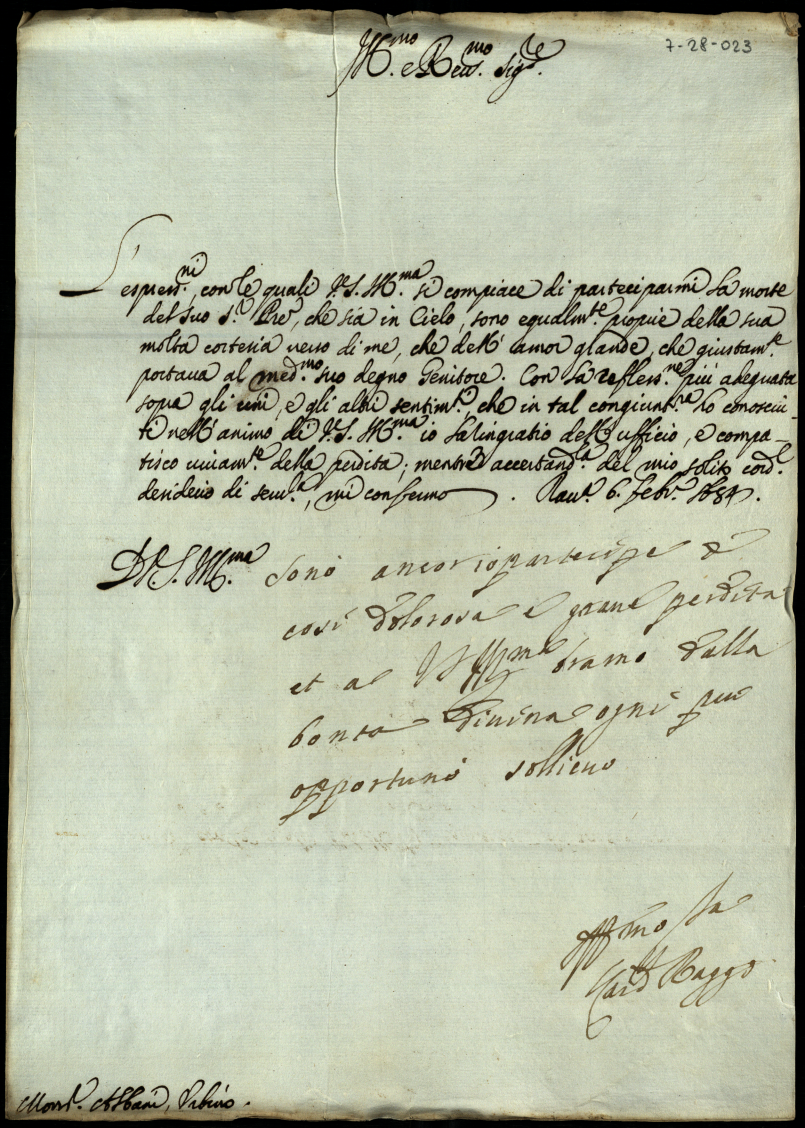 7-28-023
Ill.mo e Rev.mo Sig.re
L'espress.ni, con le quali V.S. Ill.ma si compiace di parteciparmi la morte
del suo S.r Pre, che sia in Cielo, sono equalm.te proprie della sua
molta cortesia verso di me, che dell'amor grande, che giustam.te
portava al med.mo suo degno Genitore. Con la refless.ne più adeguata
sopra gli uni, e gli altri sentim.ti, che in tal congiunt.ra ho conosciu-
ti nell'animo di V.S. Ill.ma io la ringratio dell'ufficio, e compa-
tisco vivam.te della perdita; mentre accertand.la del mio solito cord.l
desiderio di serv.la, mi confermo. Rav.a 6. Febr.o 1684.
D V.S. Ill.ma Sono ancor io partecipe di
così dolorosa e grave perdita
et a V S Ill.ma bramo dalla
bontà divina ogni più
opportuno sollievo
Aff.mo
Card Raggi
Mons.r Albani, Urbino.